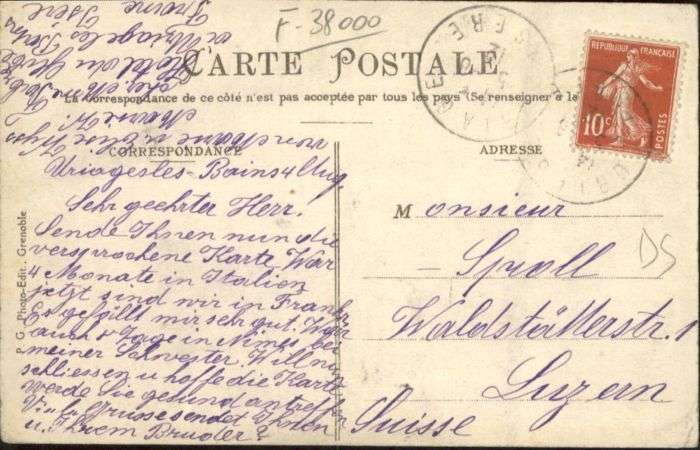 F-38000
CARTE POSTALE
La Correspondance de ce côté n'est pas acceptée par tous les pays (Se renseigner à la
CORRESPONDANCE
ADRESSE
REPUBLIQUE FRANÇAISE
10c
POSTES
Uriagesles-Bains 4 Aug.
Sehr geehrter Herr.
Sende Ihnen nun die
versprochene Karte. War
4 Monate in Italien
jetzt sind wir in Frankr.
Es gefällt mir sehr gut. War
auch Tage in Nimes bei
meiner Schwester. Will nun
schliessen u hoffe die Karte
werde Sie gesund antreffen
Viele Grüsse sendet Ihnen
u. Ihrem Bruder
Hotel du
Uriage les Bains
Isère
Monsieur
- Sproll
Waldstätterstr. 1
Luzern
Suisse
DS
G. Photo-Edit., Grenoble